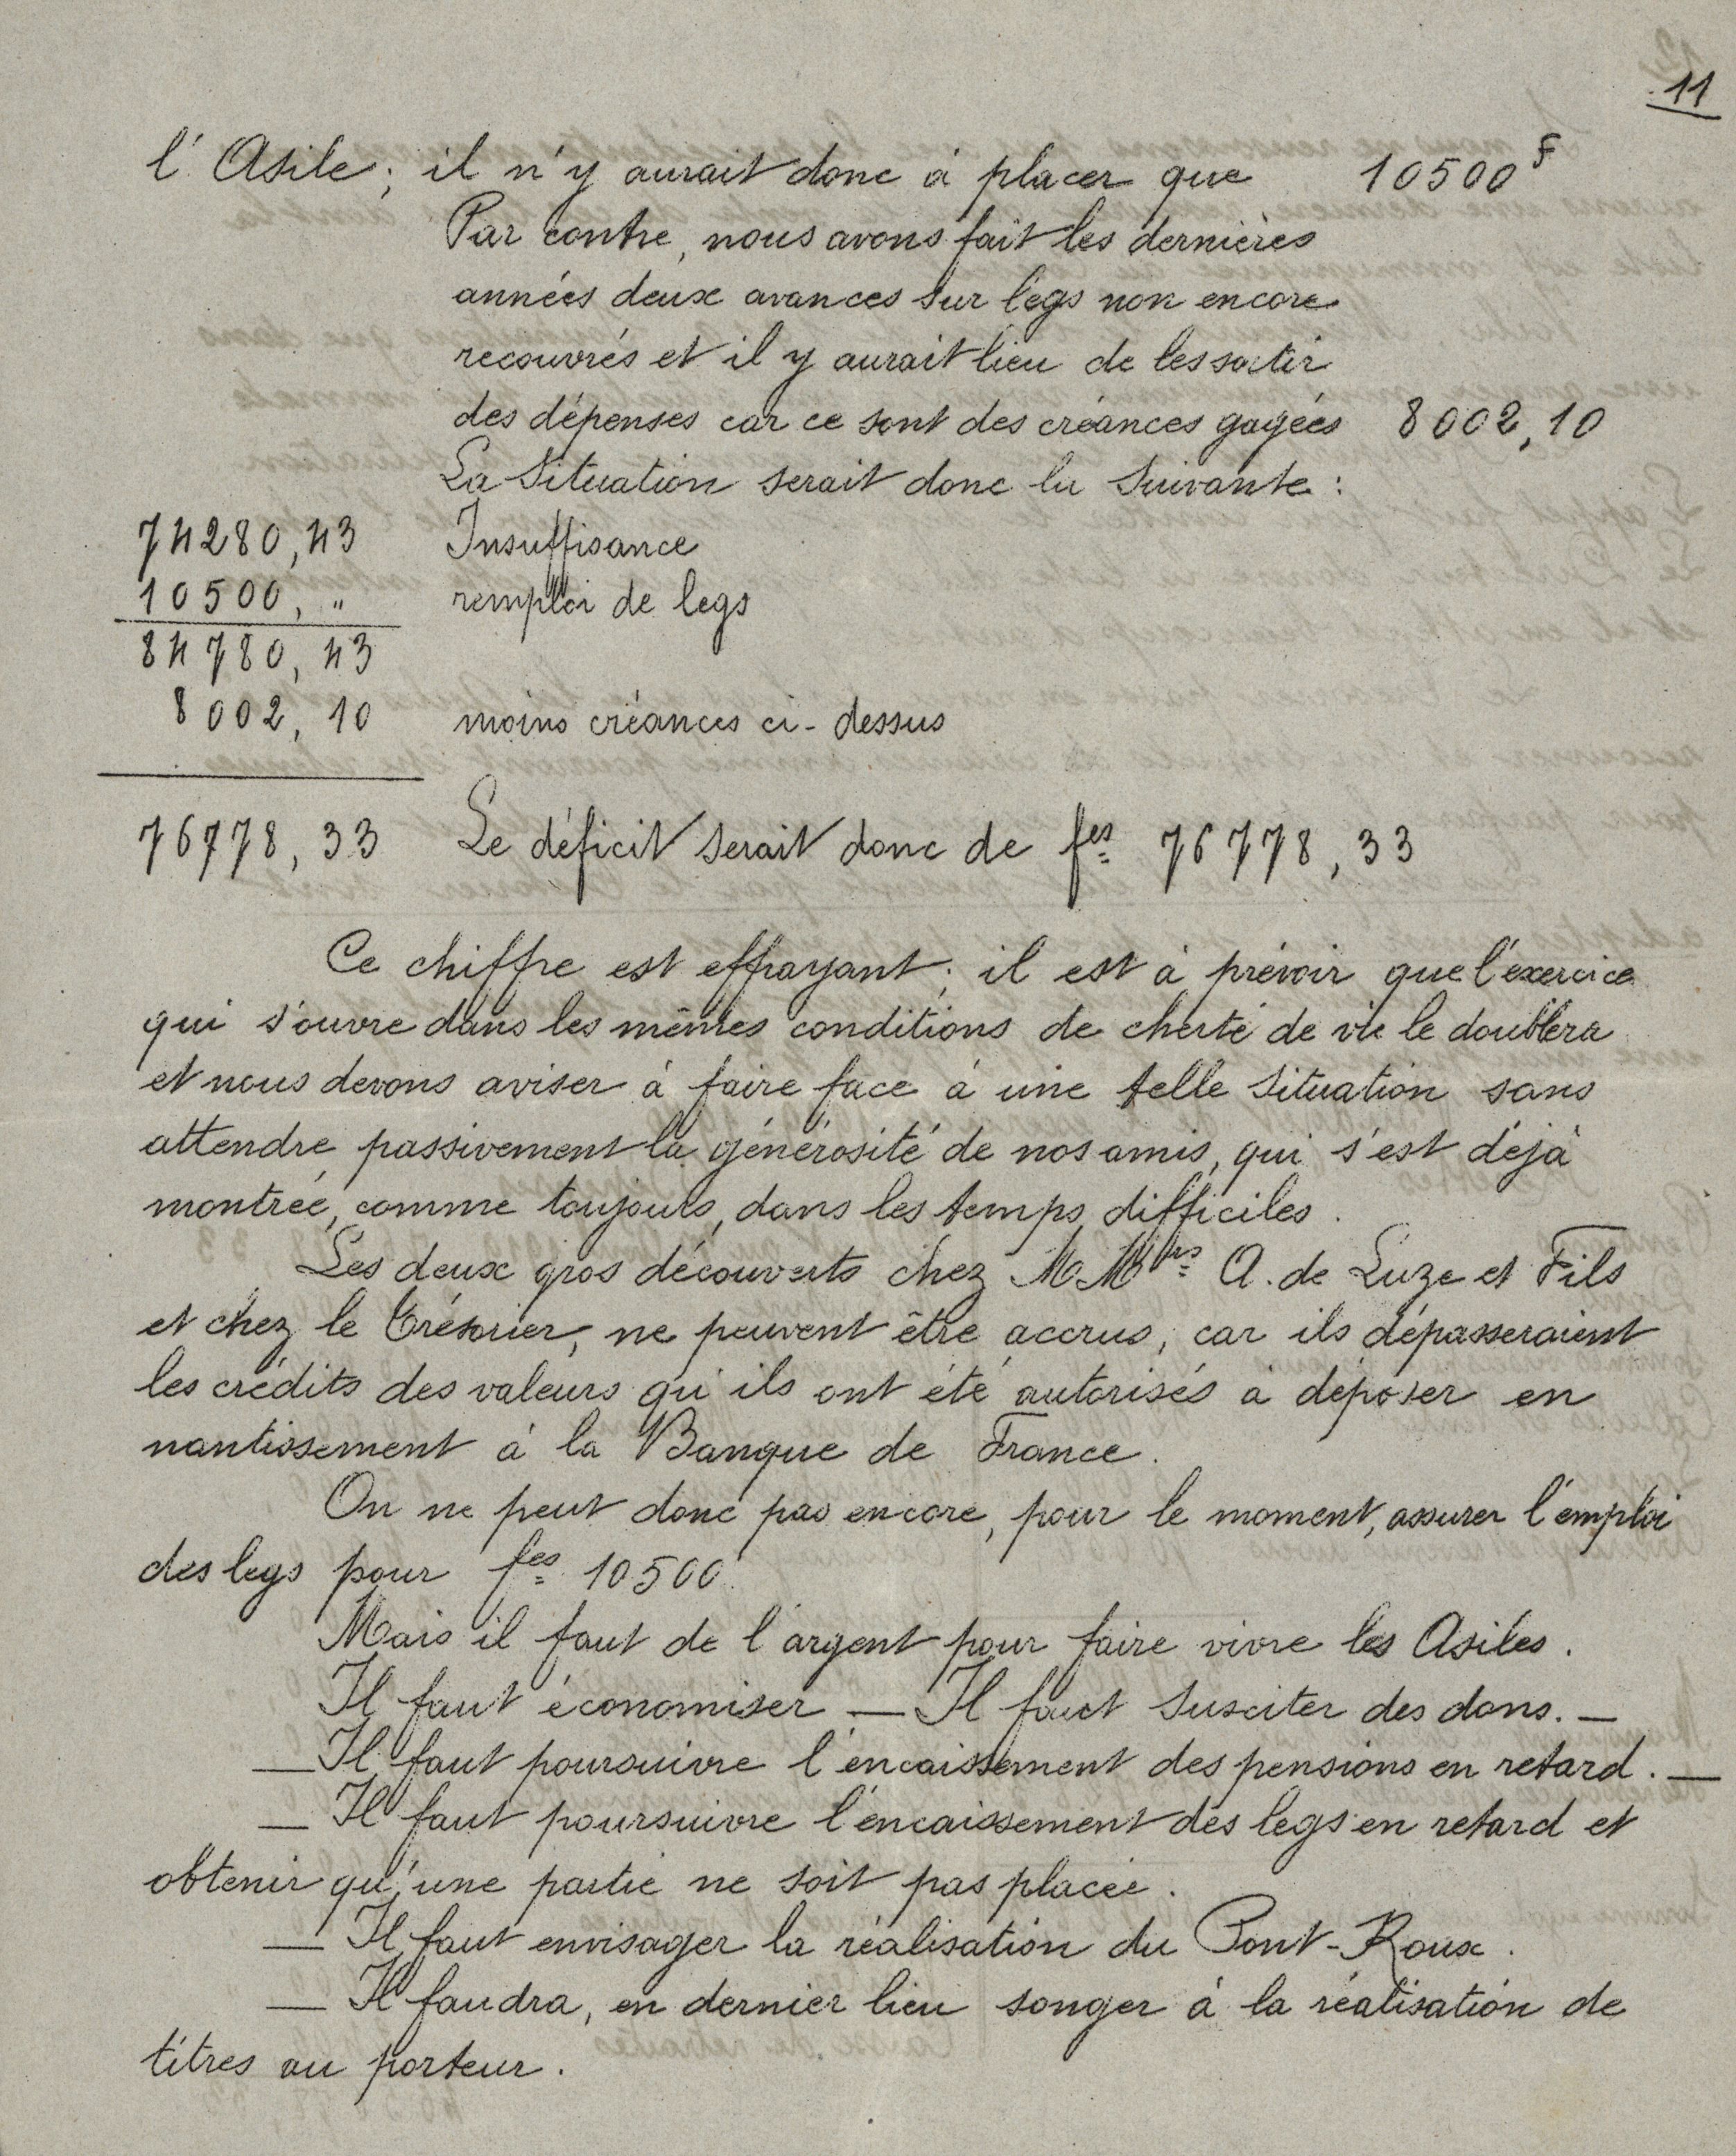 11
l'Asile; il n'y aurait donc à placer que 10500 F
Par contre, nous avons fait les dernières
années deux avances sur legs non encore
recouvrés et il y aurait lieu de les sortir
des dépenses car ce sont des créances gagées 8002,10
La Situation serait donc la Suivante :
74280,43 Insuffisance
10500, " remploi de legs
84780, 43
8002, 10 moins créances ci-dessus
76778, 33 Le déficit serait donc de fcs 76778, 33
Ce chiffre est effrayant; il est à prévoir que l'exercice
qui s'ouvre dans les mêmes conditions de cherté de vie le doublera
et nous devons aviser à faire face à une telle Situation sans
attendre passivement la générosité de nos amis, qui s'est déjà
montrée, comme toujours, dans les temps difficiles.
Les deux gros découverts chez MMrs A. de Luze et Fils
et chez le Trésorier, ne peuvent être accrus, car ils dépasseraient
les crédits des valeurs qu'ils ont été autorisés à déposer en
nantissement à la Banque de France.
On ne peut donc pas encore, pour le moment, assurer l'emploi
des legs pour fcs 10500.
Mais il faut de l'argent pour faire vivre les Asiles.
Il faut économiser — Il faut Susciter des dons. —
— Il faut poursuivre l'encaissement des pensions en retard. —
— Il faut poursuivre l'encaissement des legs en retard et
obtenir qu'une partie ne soit pas placée.
— Il faut envisager la réalisation du Pont-Roux.
— Il faudra, en dernier lieu songer à la réalisation de
titres au porteur.